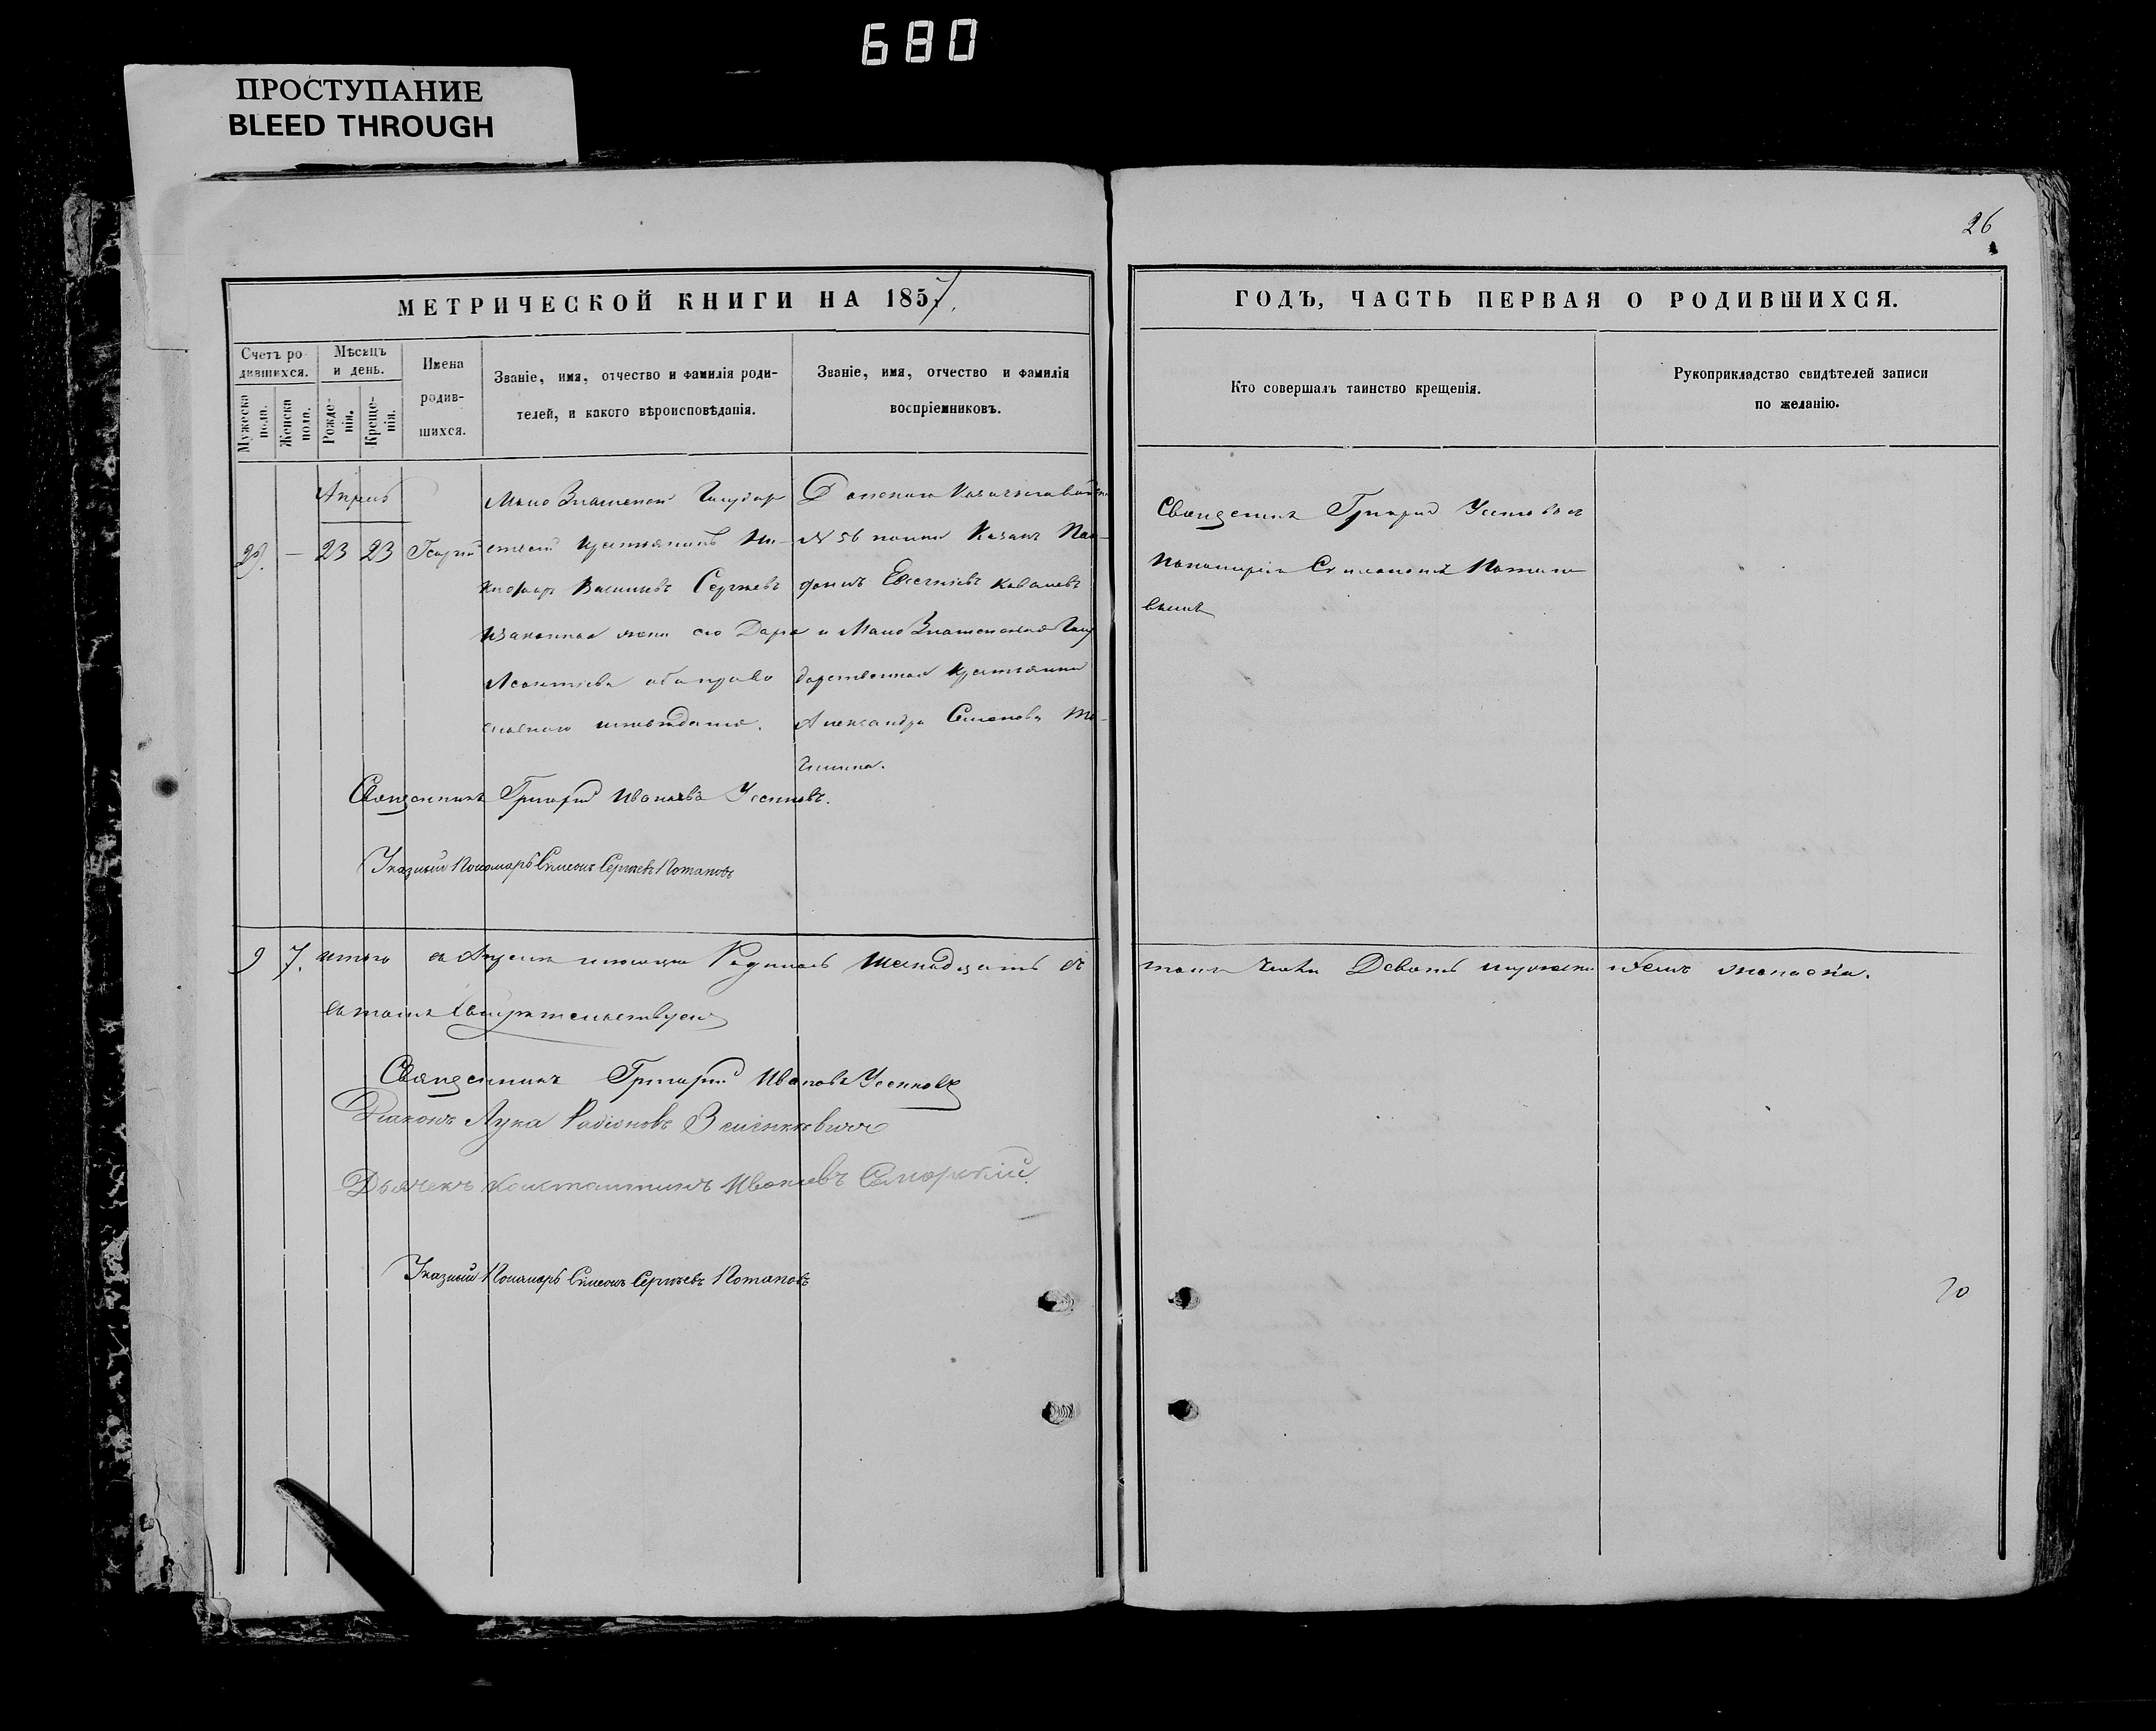 680
ПРОСТУПАНИЕ
BLEED THROUGH
26
МЕТРИЧЕСКОЙ КНИГИ НА 1857.
ГОДЪ, ЧАСТЬ ПЕРВАЯ О РОДИВШИХСЯ.
Счетъ ро-
дившихся.
Мужеска
пола.
Женска
пола.
Мѣсяцъ
и день.
Рожде-
нія.
Креще-
нія.
Имена
родив-
шихся.
Званіе, имя, отчество и фамилія роди-
телей, и какого вѣроисповѣданія.
Званіе, имя, отчество и фамилія
воспріемниковъ.
Кто совершалъ таинство крещенія.
Рукоприкладство свидѣтелей записи
по желанію.
Апрѣль
— 23 23 Георгій
Мало Знаменскій Государ
крестьянинъ Ни-
Васильевъ Сергѣевъ
законная жена его Дарья
Леонтіева оба право
славнаго
Донскаго Казачьяго
№ 56 полка Казакъ
Евсегніевъ Ковалевъ
и Мало Знаменская Госу
дарственная крестьянка
Александра Семенова
Священникъ Григорій
Пономаремъ Симеономъ Потапо
вымъ
Священникъ Григорій Ивановъ Усенковъ.
Указный Пономарь Симеонъ Сергѣевъ Потаповъ
9 7. итого въ Апрѣлѣ мѣсяцѣ Родилось Шеснадцать въ
томъ числѣ Девять мужеска и Семь женска.
въ томъ свидѣтельствуемъ
Священникъ Григорій Ивановъ Усенковъ
Діаконъ Лука Радіоновъ
Дьячекъ Константинъ Ивановъ
Указный Пономарь Симеонъ Сергѣевъ Потаповъ